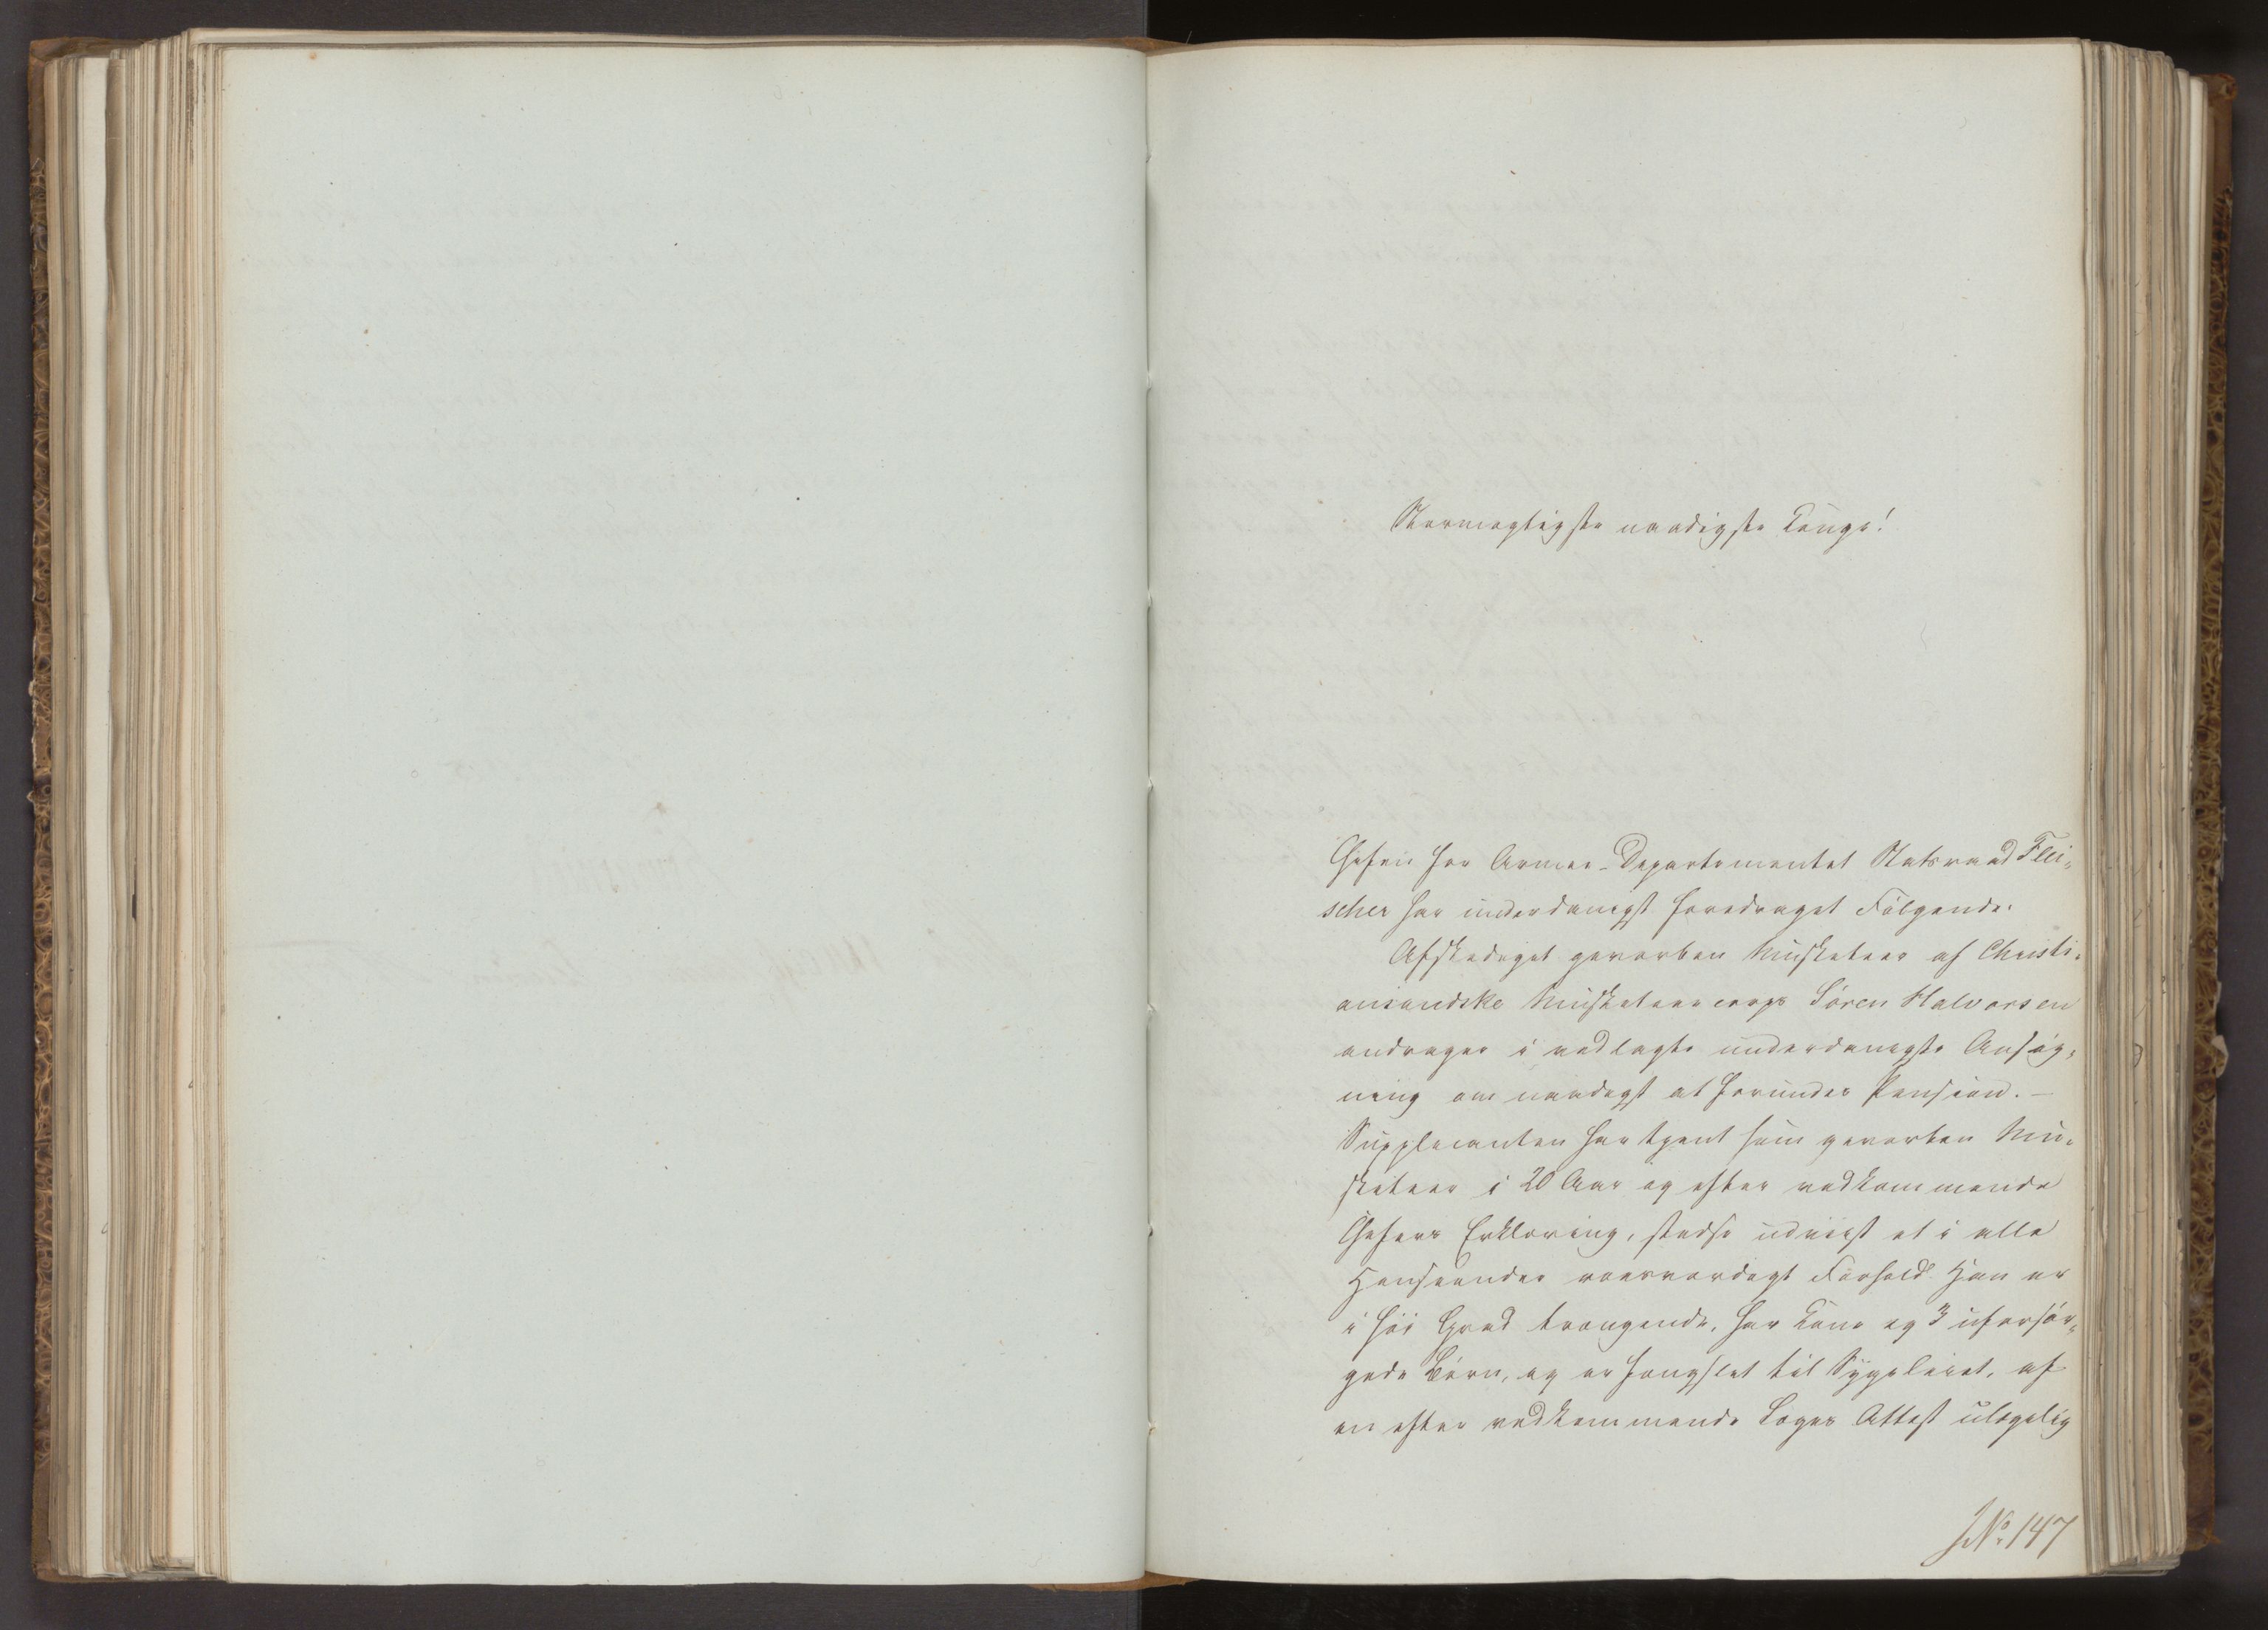 Stormægtigste naadigste Konge!
Chefen for Armee-Departementet Statsraad Flei-
scher har underdanigst foredraget Følgende:
Afskediget gevorben Musketeer af Christi-
ansandske Musketeercorps Søren Halvorsen
andrager i vedlagte underdanigste Ansøg-
ning om naadigst at forundes Pension. —
Supplicanten har tjent som gevorben Mu-
sketeer i 20 Aar og efter vedkommende
Chefers Erklæring, stedse udviist et i alle
Henseender roesværdigt Forhold. Han er
i høi Grad trængende, har Kone og 3 uforsør-
gede Børn, og er fængslet til Sygeleiet, af
en efter vedkommende Læges Attest ulægelig
J.N.º 147